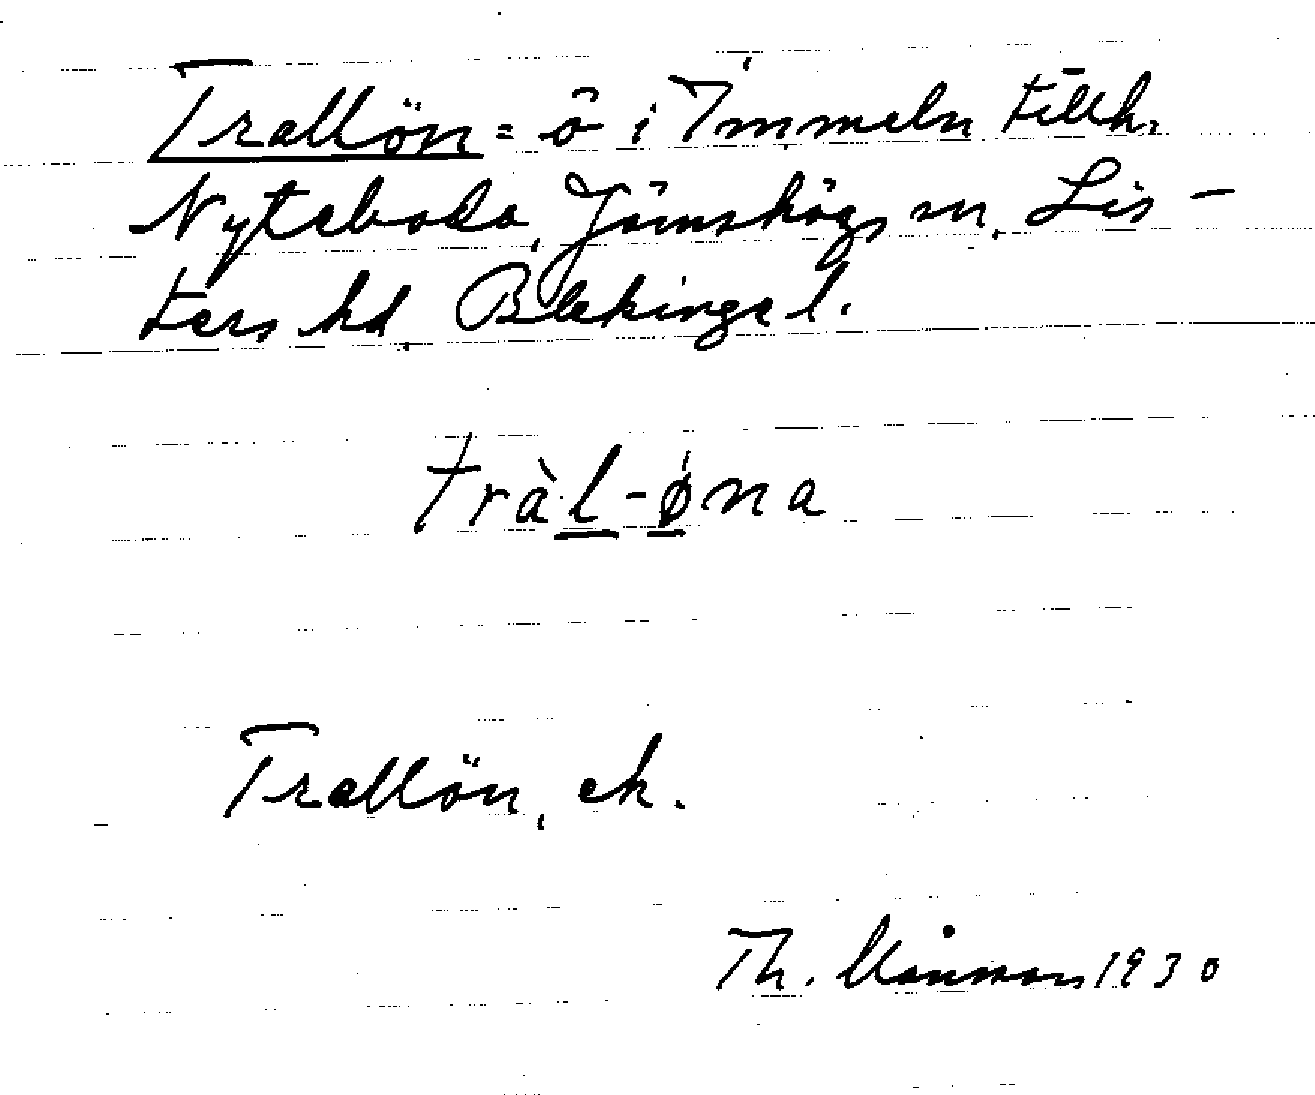 Trallön = ö i Immeln tillh.
Nyteboda, Jämshögs sn, Lis-
ters hd, Blekinge l.
tràl-øna
Trallön, ek.
Th. Månman 1930